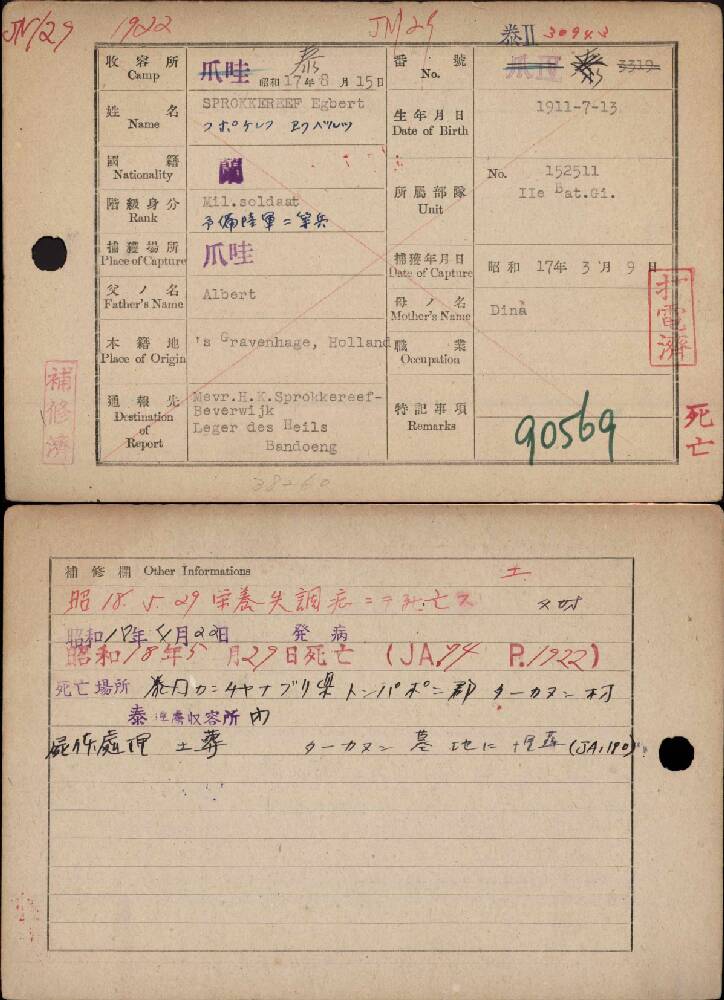 JM/29 1922 JM29 泰II 30943
收容所 Camp 爪哇 泰 昭和17年8月15日
番號 No. 爪IV 泰 3319
姓名 Name SPROKKEREEF Egbert
生年月日 Date of Birth 1911-7-13
國籍 Nationality 蘭
所屬部隊 Unit No. 152511
IIe Bat.Gi.
階級身分 Rank Mil.soldaat
予備陸軍二等兵
捕獲場所 Place of Capture 爪哇
捕獲年月日 Date of Capture 昭和 17年 3月 9日
父ノ名 Father's Name Albert
母ノ名 Mother's Name Dina
本籍地 Place of Origin 's Gravenhage, Holland
職業 Occupation
通報先 Destination of Report Mevr.H.K.Sprokkereef-
Beverwijk
Leger des Heils
Bandoeng
特記事項 Remarks 90569
打電濟
補修濟
死亡
38-60
補修欄 Other Informations
昭18.5.29 栄養失調症ニテ死亡ス
昭和18年4月22日 発病
昭和18年5月29日死亡 (JA.94 P.1922)
死亡場所 泰国カンチャナブリ県トンパポン郡ターカヌン村
泰俘虜収容所内
屍体處理 土葬 ターカヌン墓地に埋葬(JA.190)